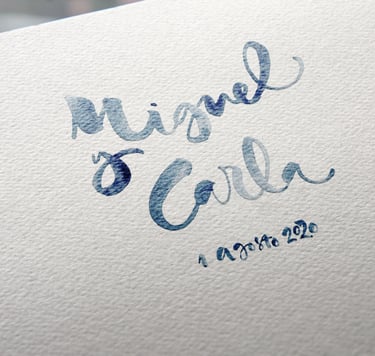 Miguel
y
Carla
1 agosto 2020